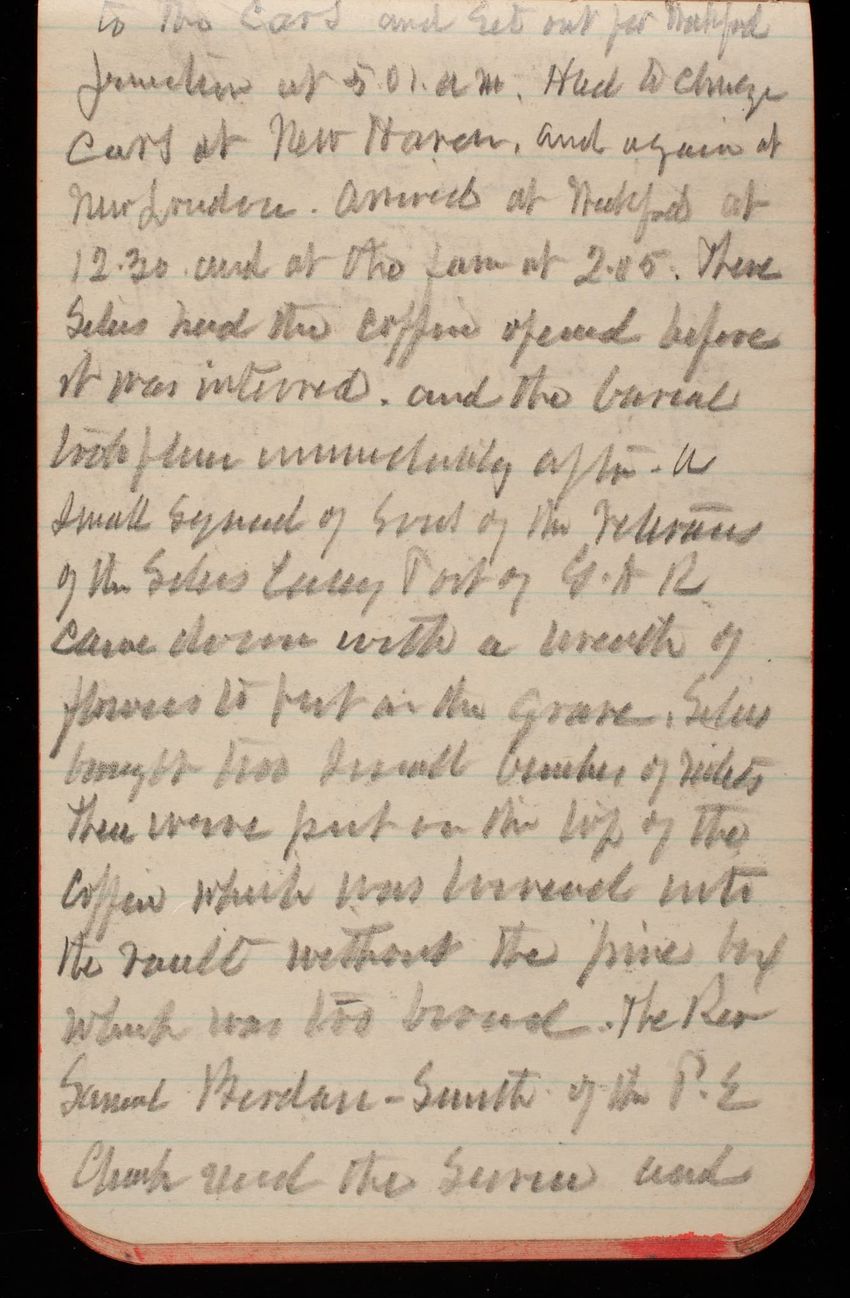 to the cars and set out for Wickford
Junction at 5.01. a.m. Had to change
cars at New Haven, and again at
New London. Arrived at Wickford at
12.30 and at the farm at 2.05. There
Silas had the coffin opened before
it was interred. and the burial
took place immediately after. A
small squad of Sons of the Veterans
of the Silas Casey Post of G.A R
came down with a wreath of
flowers to put on the grave. Silas
bought two small bunches of violets
These were put on the top of the
coffin which was lowered into
the vault without the pine box
which was too broad. The Rev
Samuel Borden-Smith of the P.E
Church read the service and